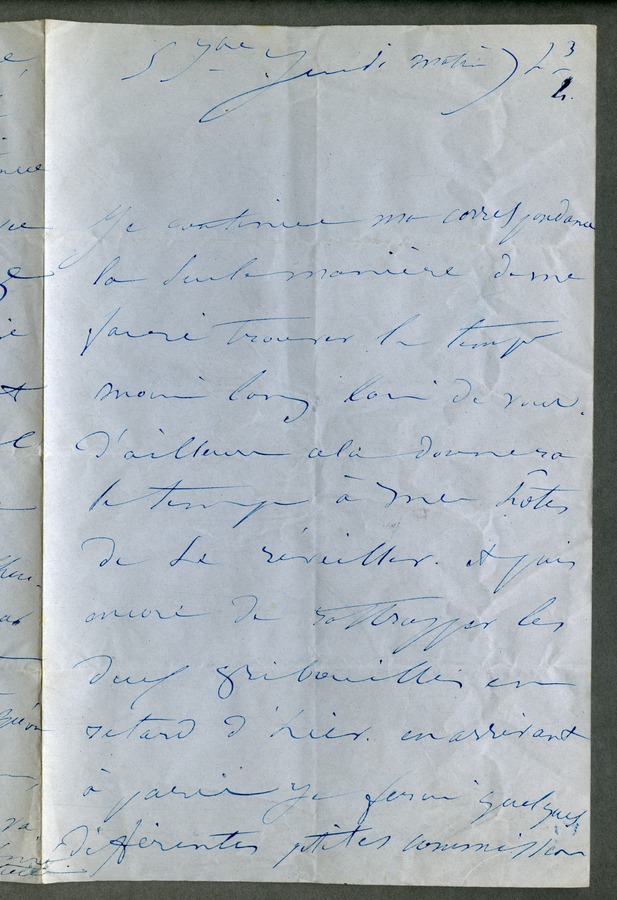 5 7bre Jeudi matin
Je continue ma correspondance
la seule manière de me
faire trouver le temps
moins long loin de vous.
D'ailleurs cela donnera
le temps à mes hôtes
de se réveiller. et puis
encore de rattrapper les
deux gribouillis en
retard d'hier. en arrivant
à paris je ferai quelques
différentes ptites commission